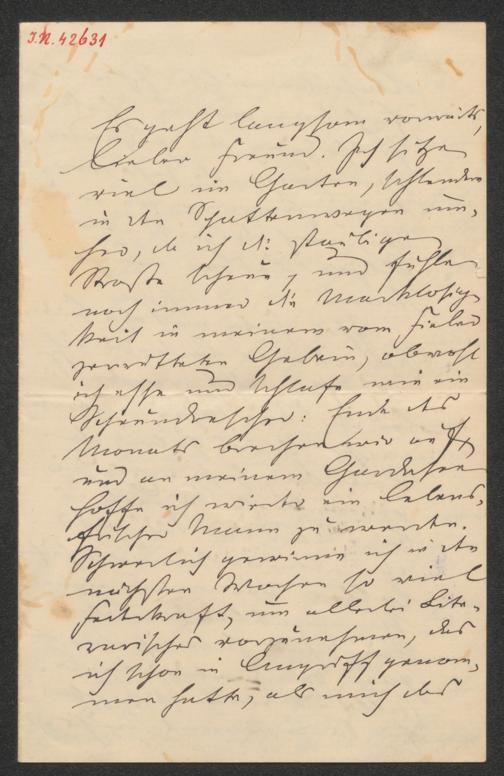 J.N. 42631
Es geht langsam vorwärts,
lieber Freund. Ich sitze
viel im Garten, schlendere
in den Schattenwegen um-
her, da ich die staubige
Straße scheue, und fühle
noch immer die Marklosig-
keit in meinem vom Fieber
zerrütteten Gebein, obwohl
ich esse und schlafe wie ein
Scheundrescher. Ende des
Monats brechen wir auf
und an meinem Gardasee
hoffe ich wieder ein lebens-
frischer Mann zu werden.
Schwerlich gewinne ich in den
nächsten Wochen so viel
Federkraft, um allerlei Lite-
rarisches vorzunehmen, das
ich schon in Angriff genom-
men hatte, als mich das